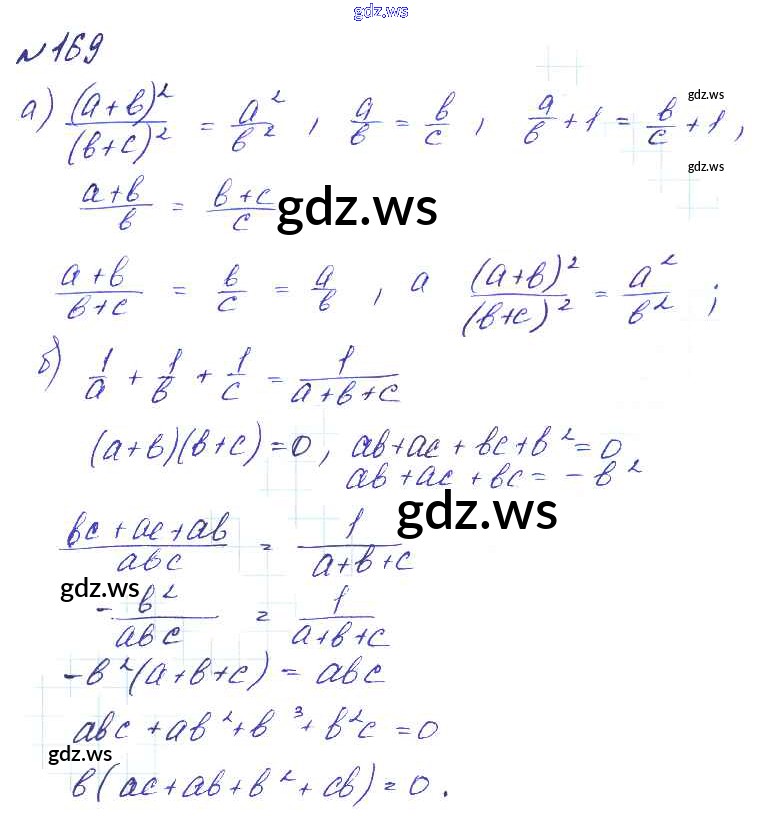 gdz.ws
№169
а) (a+b)²/(b+c)² = a²/b², a/b = b/c, a/b + 1 = b/c + 1,
gdz.ws
gdz.ws
(a+b)/b = (b+c)/c
gdz.ws
(a+b)/(b+c) = b/c = a/b, а (a+b)²/(b+c)² = a²/b²;
б) 1/a + 1/b + 1/c = 1/(a+b+c)
(a+b)(b+c)=0, ab+ac+bc+b²=0
ab+ac+bc=-b²
gdz.ws
(bc+ac+ab)/abc = 1/(a+b+c)
gdz.ws
-b²/abc = 1/(a+b+c)
-b²(a+b+c) = abc
abc+ab²+b³+b²c=0
gdz.ws
b(ac+ab+b²+cb)=0.